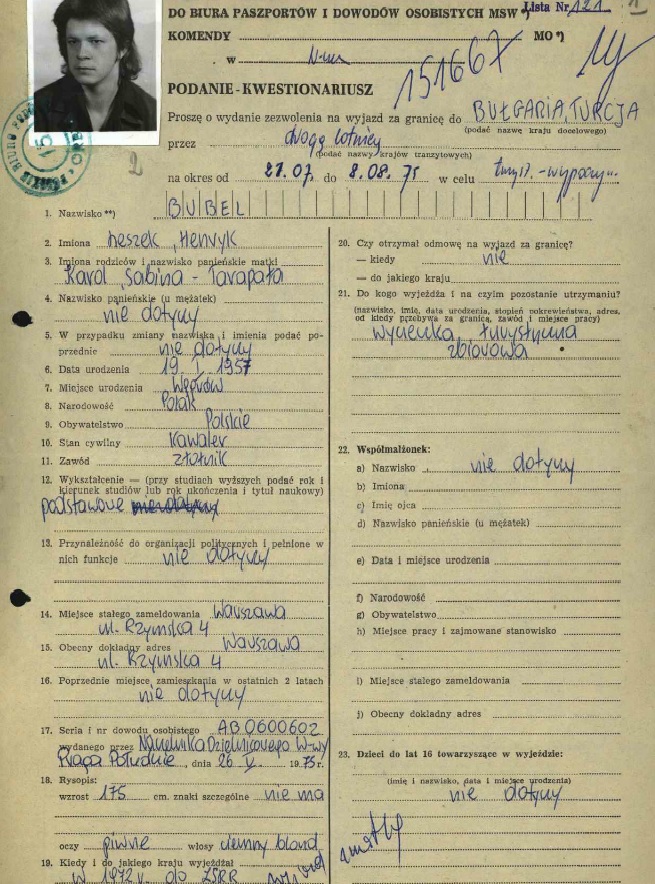 Lista Nr 121
DO BIURA PASZPORTÓW I DOWODÓW OSOBISTYCH MSW *)
KOMENDY MO *)
w
151667
PODANIE-KWESTIONARIUSZ
Proszę o wydanie zezwolenia na wyjazd za granicę do BUŁGARIA, TURCJA
(podać nazwę kraju docelowego)
przez drogę lotniczą
(podać nazwy krajów tranzytowych)
na okres od 27.07. do 8.08. 75 w celu turyst.-wypocz.
1. Nazwisko **) BUBEL
2. Imiona Leszek, Henryk
3. Imiona rodziców i nazwisko panieńskie matki
Karol, Sabina - Tarapata
4. Nazwisko panieńskie (u mężatek)
nie dotyczy
5. W przypadku zmiany nazwiska i imienia podać po-
przednie nie dotyczy
6. Data urodzenia 19. I. 1957
7. Miejsce urodzenia Węgrów
8. Narodowość Polak
9. Obywatelstwo Polskie
10. Stan cywilny Kawaler
11. Zawód złotnik
12. Wykształcenie — (przy studiach wyższych podać rok i
kierunek studiów lub rok ukończenia i tytuł naukowy)
podstawowe
13. Przynależność do organizacji politycznych i pełnione w
nich funkcje nie dotyczy
14. Miejsce stałego zameldowania Warszawa
ul. Rzymska 4
15. Obecny dokładny adres Warszawa
ul. Rzymska 4
16. Poprzednie miejsce zamieszkania w ostatnich 2 latach
nie dotyczy
17. Seria i nr dowodu osobistego AB 0600602
wydanego przez Naczelnika Dzielnicowego W-wy
Praga Południe, dnia 26. V. 1975 r.
18. Rysopis:
wzrost 175 cm. znaki szczególne nie ma
oczy piwne włosy ciemny blond
19. Kiedy i do jakiego kraju wyjeżdżał
w 1972 r. do ZSRR
20. Czy otrzymał odmowę na wyjazd za granicę?
— kiedy nie
— do jakiego kraju
21. Do kogo wyjeżdża i na czyim pozostanie utrzymaniu?
(nazwisko, imię, data urodzenia, stopień pokrewieństwa, adres,
od kiedy przebywa za granicą, zawód i miejsce pracy)
wycieczka turystyczna
zbiorowa
22. Współmałżonek:
a) Nazwisko nie dotyczy
b) Imiona
c) Imię ojca
d) Nazwisko panieńskie (u mężatek)
e) Data i miejsce urodzenia
f) Narodowość
g) Obywatelstwo
h) Miejsce pracy i zajmowane stanowisko
i) Miejsce stałego zameldowania
j) Obecny dokładny adres
23. Dzieci do lat 16 towarzyszące w wyjeździe:
(imię i nazwisko, data i miejsce urodzenia)
nie dotyczy